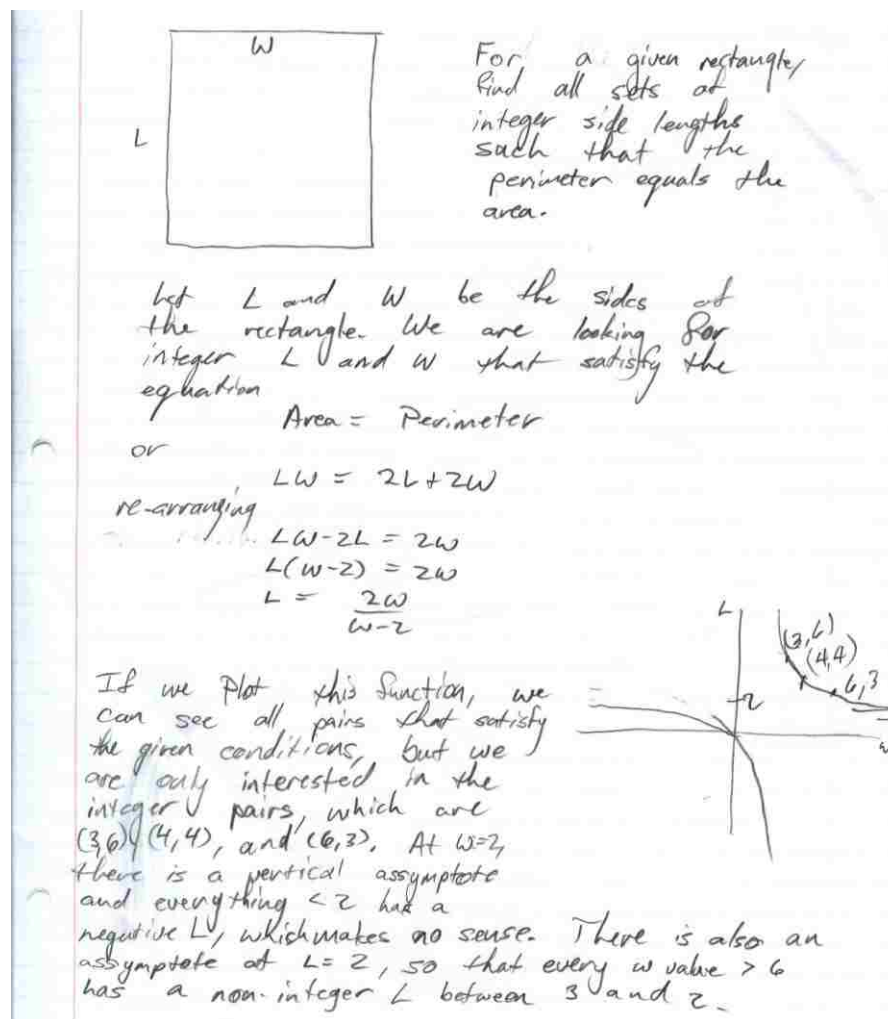 W
For a given rectangle,
find all sets of
integer side lengths
L
such that the
perimeter equals the
area.
Let L and W be the sides of
the rectangle. We are looking for
integer L and W that satisfy the
equation
Area = Perimeter
or
LW = 2L+2W
re-arranging
LW-2L = 2W
L(W-2) = 2W
L = 2W
W-2
L
(3,6)
(4,4)
6,3
2
W
If we Plot this function, we
can see all pairs that satisfy
the given conditions, but we
are only interested in the
integer pairs, which are
(3,6), (4,4), and (6,3). At W=2,
there is a vertical assymptote
and everything <2 has a
negative L, which makes no sense. There is also an
assymptote at L=2, so that every W value > 6
has a non-integer L between 3 and 2.